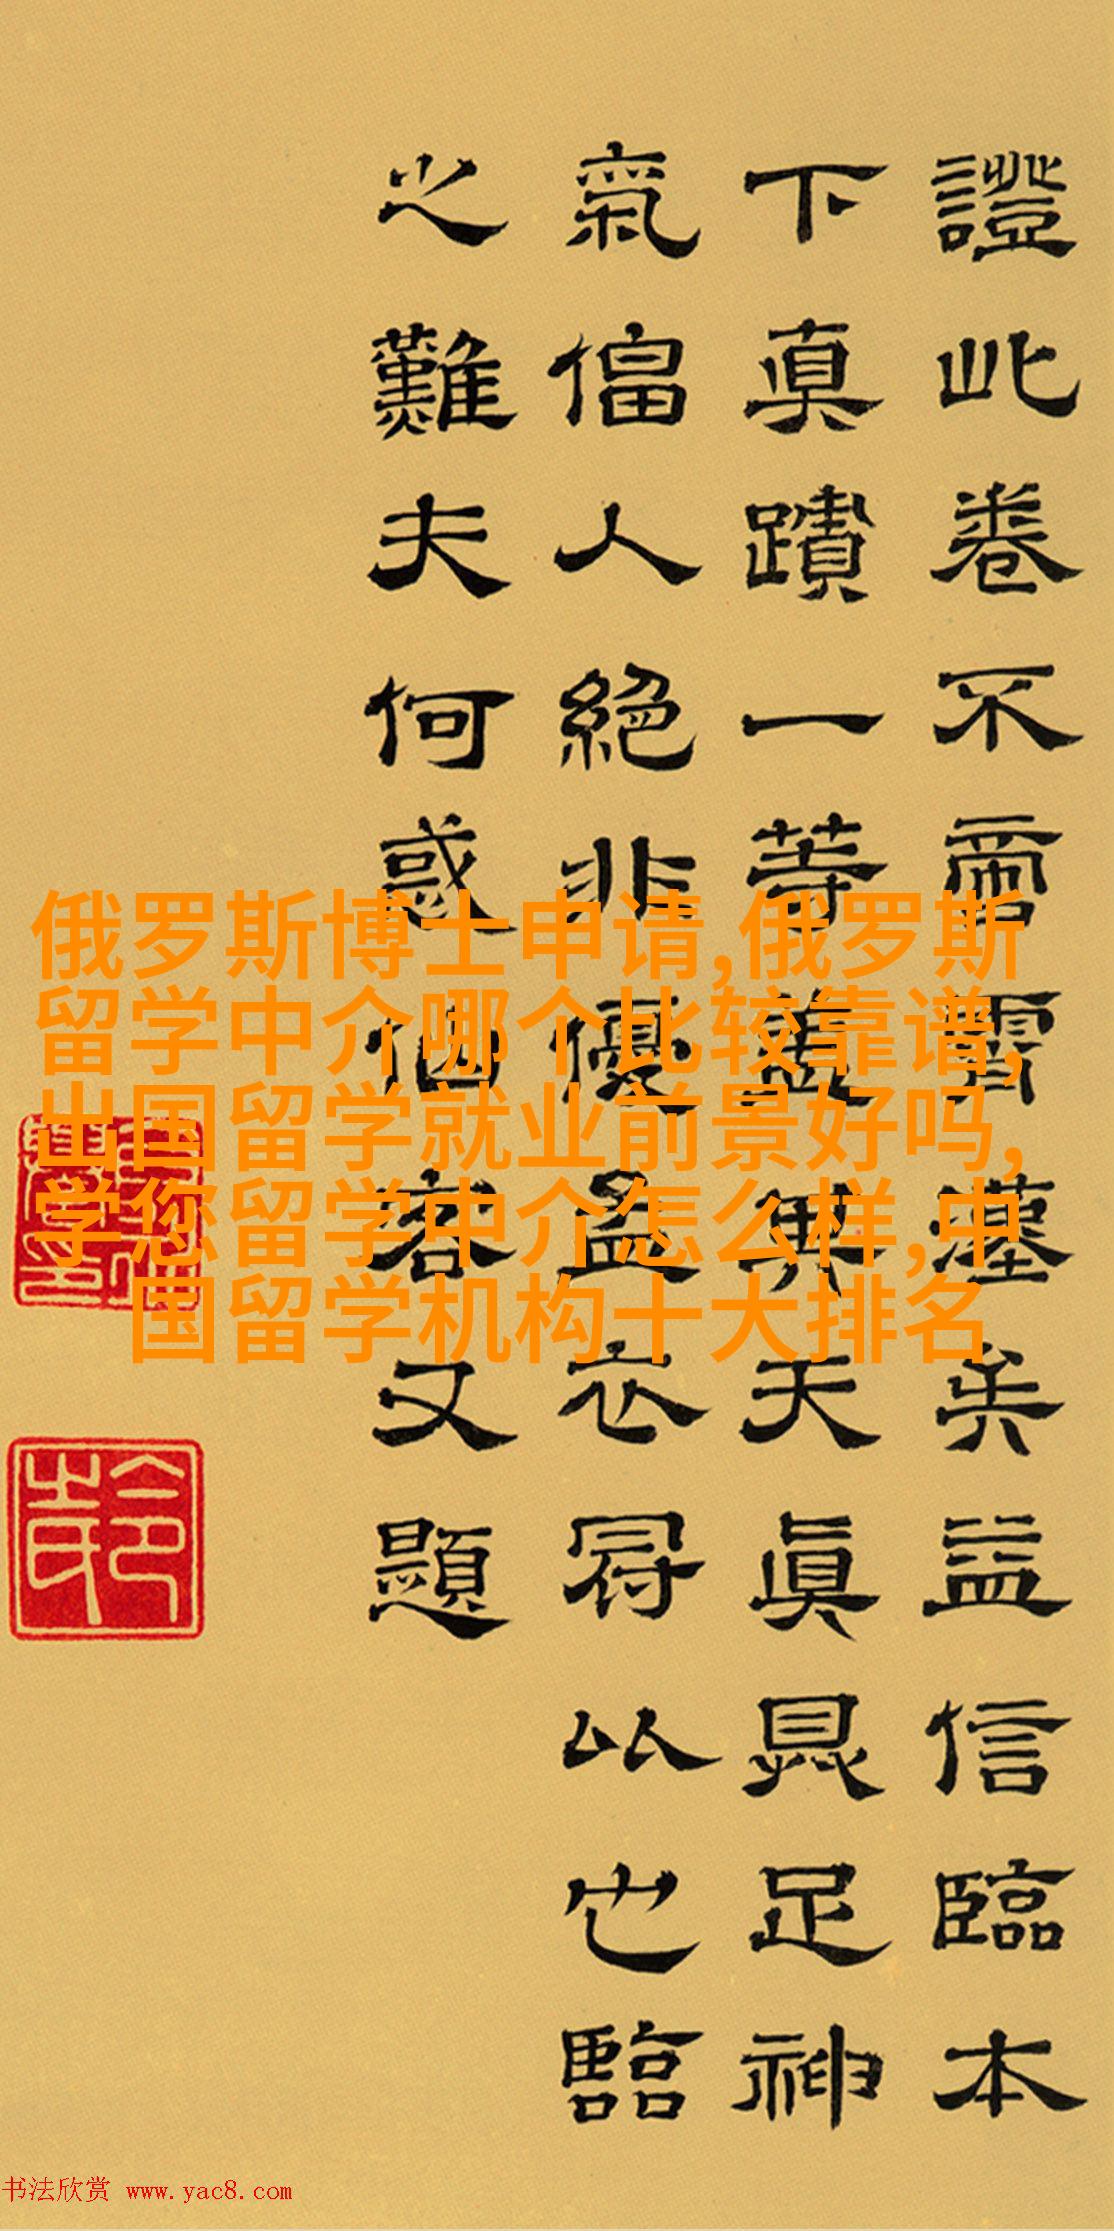 證此卷不啻霄壤矣益信臨本
下真蹟一等蓋無天眞具足神
氣偪人絕非優孟衣冠比也臨
之難夫何惑伯客又題
俄罗斯博士申请,俄罗斯
留学中介哪个比较靠谱,
出国留学就业前景好吗,
学您留学中介怎么样,中
国留学机构十大排名
书法欣赏 www.yac8.com